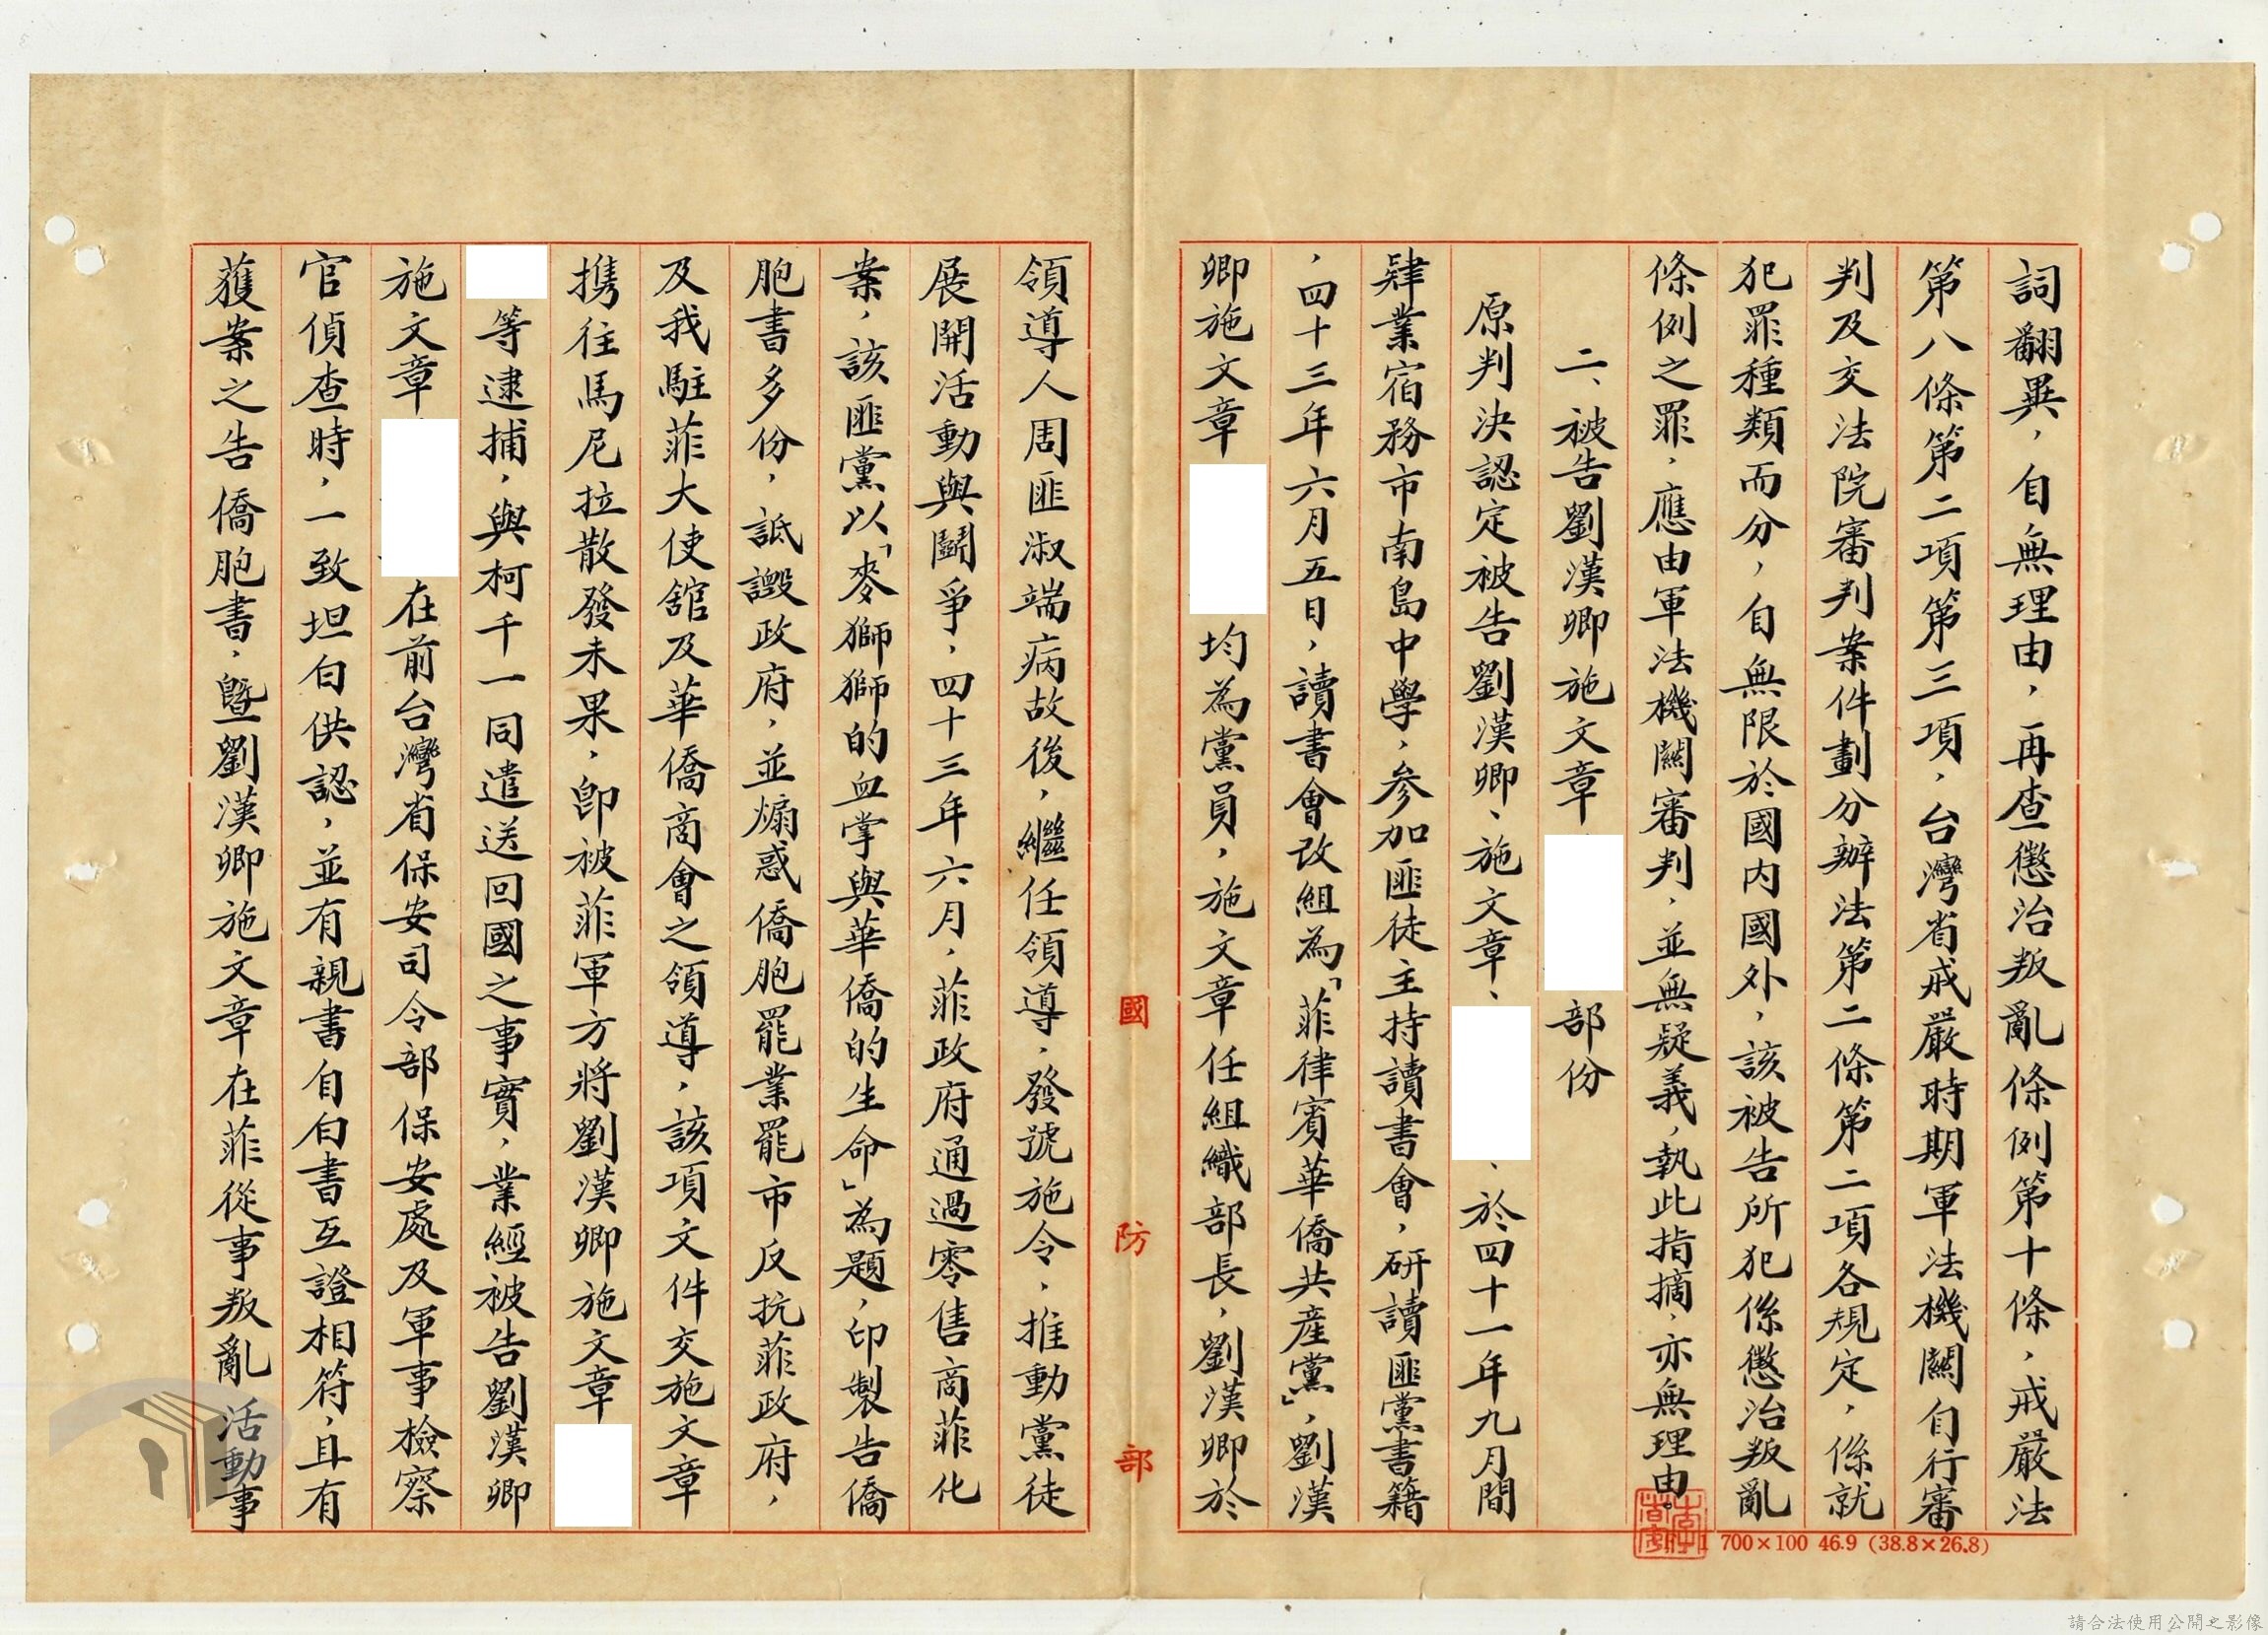 詞翻異，自無理由，再查懲治叛亂條例第十條，戒嚴法
第八條第二項第三項，台灣省戒嚴時期軍法機關自行審
判及交法院審判案件劃分辦法第二條第二項各規定，係就
犯罪種類而分，自無限於國內國外，該被告所犯係懲治叛亂
條例之罪，應由軍法機關審判，並無疑義，執此指摘，亦無理由。
二、被告劉漢卿施文章
部份
原判決認定被告劉漢卿、施文章、
、於四十一年九月間
肄業宿務市南島中學，参加匪徒主持讀書會，研讀匪黨書籍
，四十三年六月五日，讀書會改組為「菲律賓華僑共產黨」，劉漢
卿施文章
均為黨員，施文章任組織部長，劉漢卿於
國防部
領導人周匪淑端病故後，繼任領導，發號施令，推動黨徒
展開活動與鬪爭，四十三年六月，菲政府通過零售商菲化
案，該匪黨以「麥獅獅的血掌與華僑的生命」為題，印製告僑
胞書多份，詆譭政府，並煽惑僑胞罷業罷市反抗菲政府，
及我駐菲大使舘及華僑商會之領導，該項文件交施文章
携往馬尼拉散發未果，即被菲軍方將劉漢卿施文章
等逮捕，與柯千一同遣送回國之事實，業經被告劉漢卿
施文章
在前台灣省保安司令部保安處及軍事檢察
官偵查時，一致坦白供認，並有親書自白書互證相符，且有
獲案之告僑胞書，暨劉漢卿施文章在菲從事叛亂活動事
1 700×100 46.9 (38.8×26.8)
請合法使用公開之影像